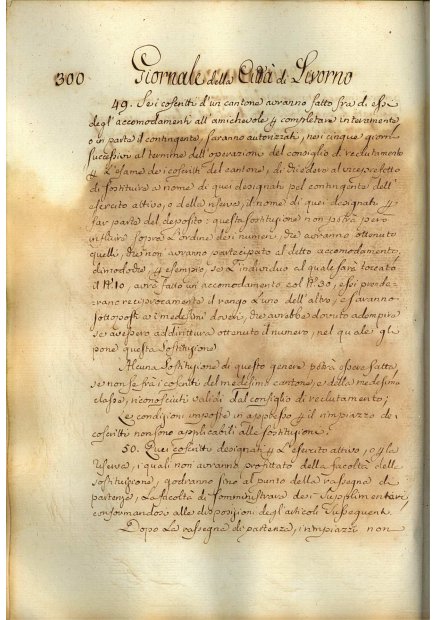 300 Giornale della Città di Livorno
49. Se i coscritti d'un cantone avranno fatto fra di essi
degl'accomodamenti all'amichevole p completare interamente
o in parte il contingente, saranno autorizzati, nei cinque giorni
successivi al termine dell'operazioni del consiglio di reclutamento
p l'esame dei coscritti del cantone, di chiedere al viceprefetto
di sostituire a nome di quei designati pel contingente dell'
esercito attivo, o della riserva, il nome di quei designati p
far parte del deposito: questa sostituzione non potrà però
influire sopra l'ordine dei numeri, che avranno ottenuto
quelli, che non avranno partecipato al detto accomodamento,
dimodochè, p esempio, se l'individuo al quale sarà toccato
il N.º 10, avrà fatto un accomodamento col N.º 30, essi prende-
ranno reciprocamente il rango l'uno dell'altro, e saranno
sottoposti ai medesimi doveri, che avrebbe dovuto adempire
se avessero addirittura ottenuto il numero, nel quale gli
pone questa sostituzione.
Alcuna sostituzione di questo genere potrà essere fatta,
se non se frà i coscritti del medesimo cantone, e della medesima
classe, riconosciuti validi dal consiglio di reclutamento;
Le condizioni imposte in appresso p il rimpiazzo dei
coscritti non sono applicabili alle sostituzione.
50. Quei coscritti designati p l'esercito attivo, o p la
riserva, i quali non avranno profittato della facoltà delle
sostituzione, godranno sino al punto della rassegna di
partenza, la facoltà di somministrare dei supplimentari,
conformandosi alle disposizioni degli articoli susseguenti.
Dopo la rassegna di partenza, i rimpiazzi non